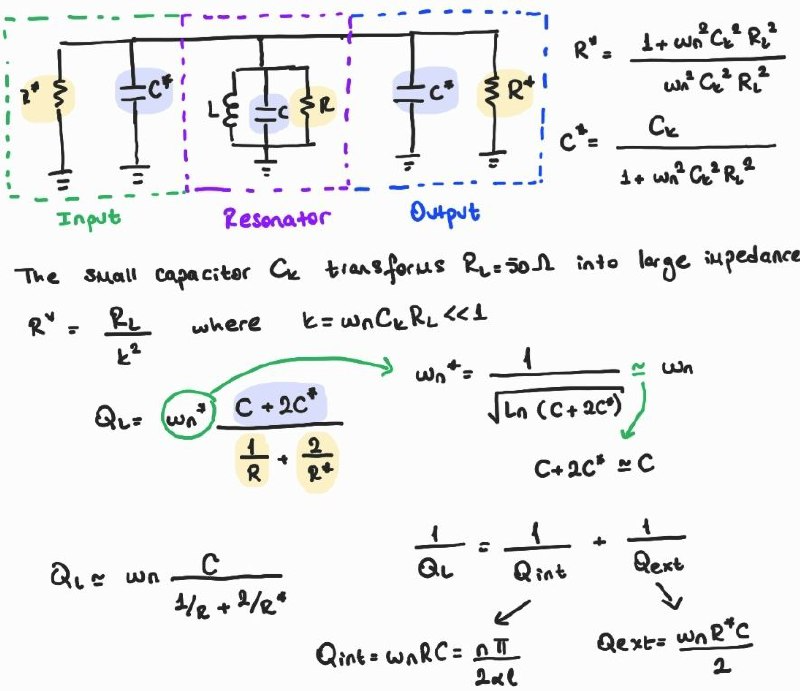 R* C* L C R C* R*
Input Resonator Output
R* = (1 + ωn² Ck² RL²) / (ωn² Ck² RL²)
C* = Ck / (1 + ωn² Ck² RL²)
The small capacitor Ck transforms RL = 50Ω into large impedance
R* = RL / k² where k = ωn Ck RL << 1
QL = ωn* (C + 2C*) / (1/R + 2/R*)
ωn* = 1 / √(Ln (C + 2C*)) ≃ ωn
C + 2C* ≃ C
QL ≃ ωn C / (1/R + 2/R*)
1/QL = 1/Qint + 1/Qext
Qint = ωn RC = nπ / 2αl
Qext = ωn R* C / 2